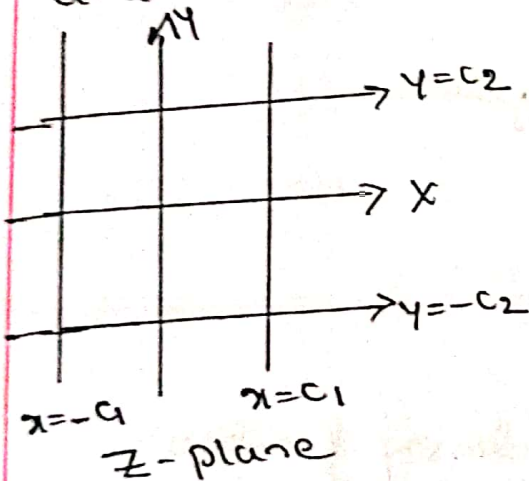 Y
y=c2
X
y=-c2
x=-c1
x=c1
Z-plane